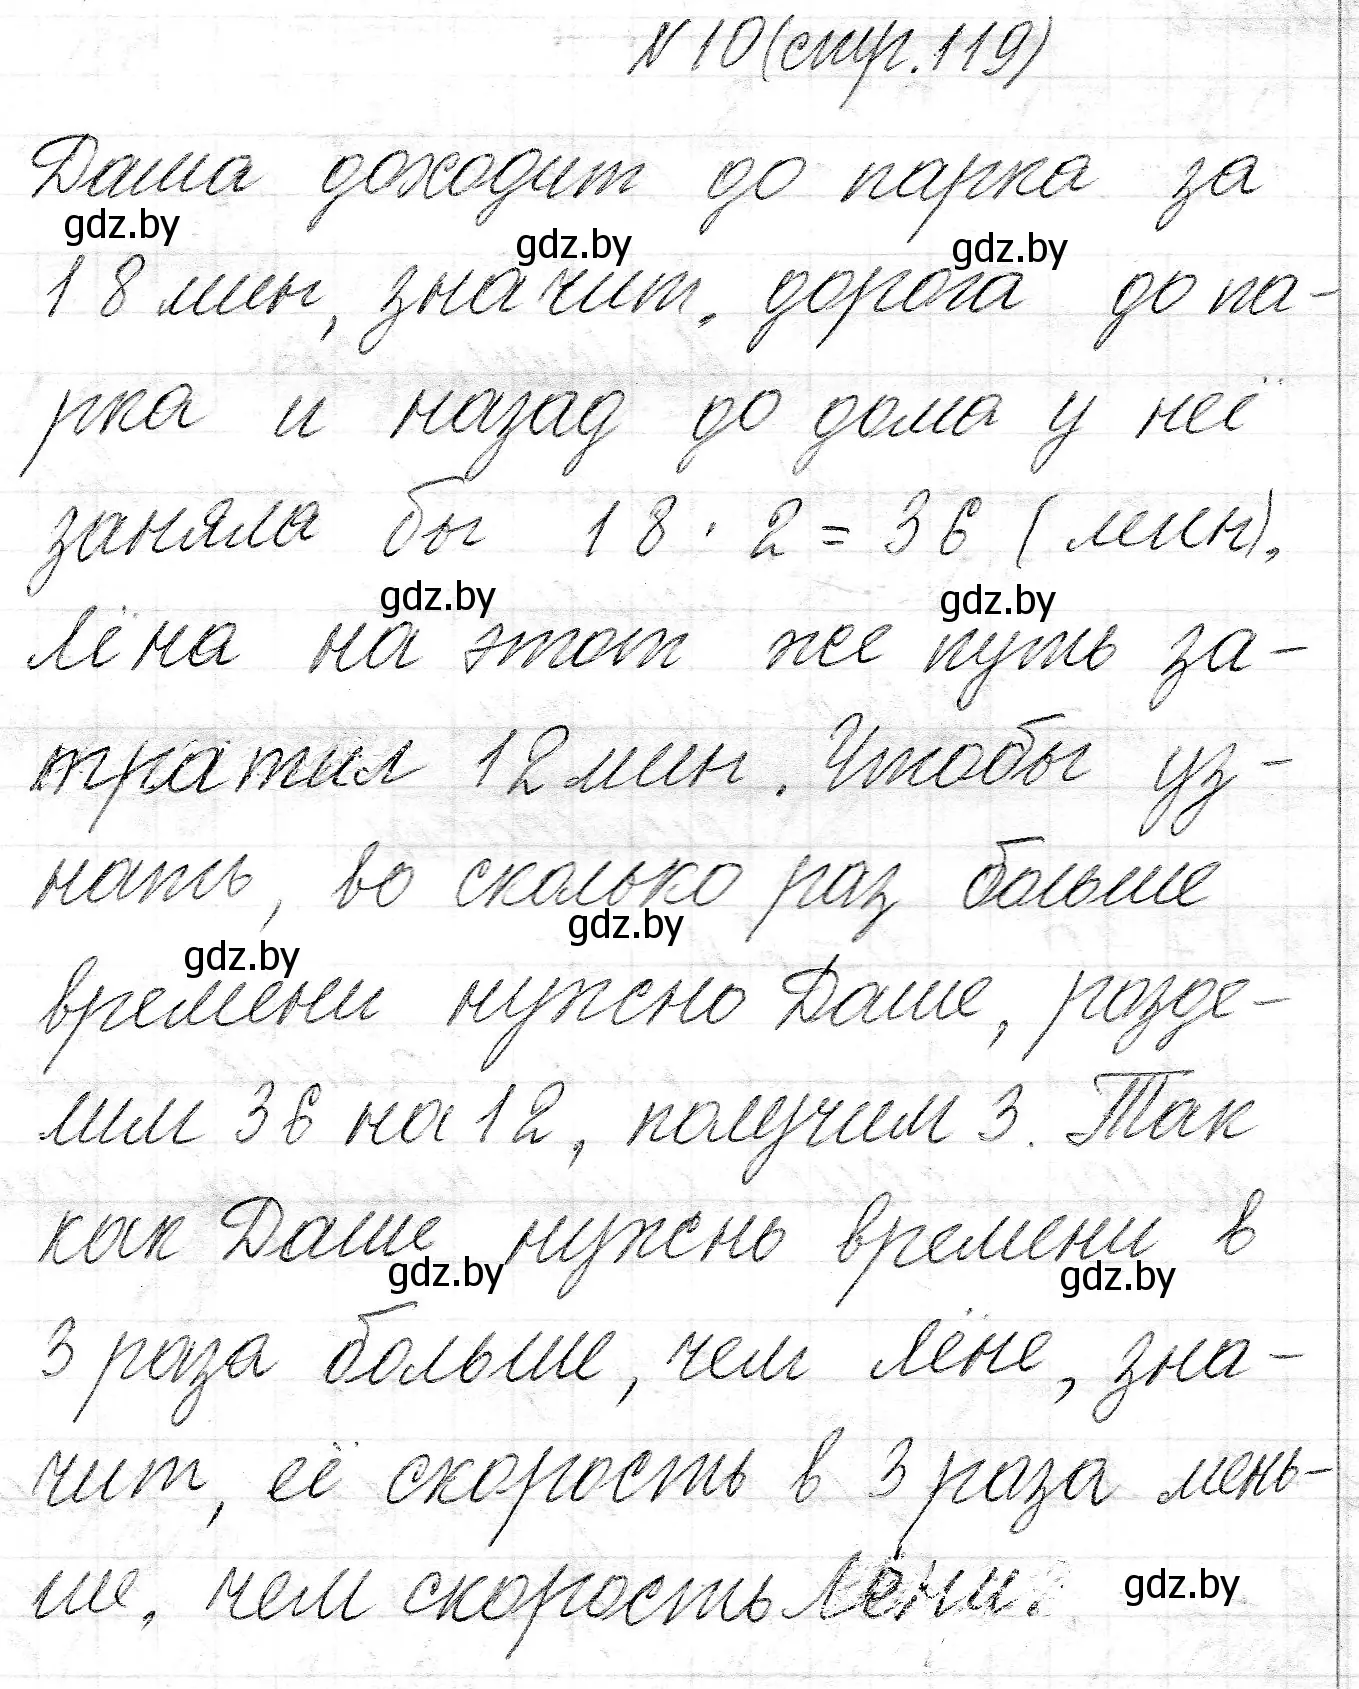 № 10 (стр. 119)
Даша доходит до парка за
gdz.by gdz.by gdz.by
18 мин, значит, дорога до па-
рка и назад до дома у неё
заняла бы 18 · 2 = 36 (мин).
gdz.by gdz.by
Лёна на этот же путь за-
тратил 12 мин. Чтобы уз-
нать, во сколько раз больше
gdz.by gdz.by
времени нужно Даше, разде-
лим 36 на 12, получим 3. Так
как Даше нужнь времени в
gdz.by gdz.by
3 раза больше, чем Лёне, зна-
чит, её скорость в 3 раза мень-
ше, чем скорость Лёни.
gdz.by